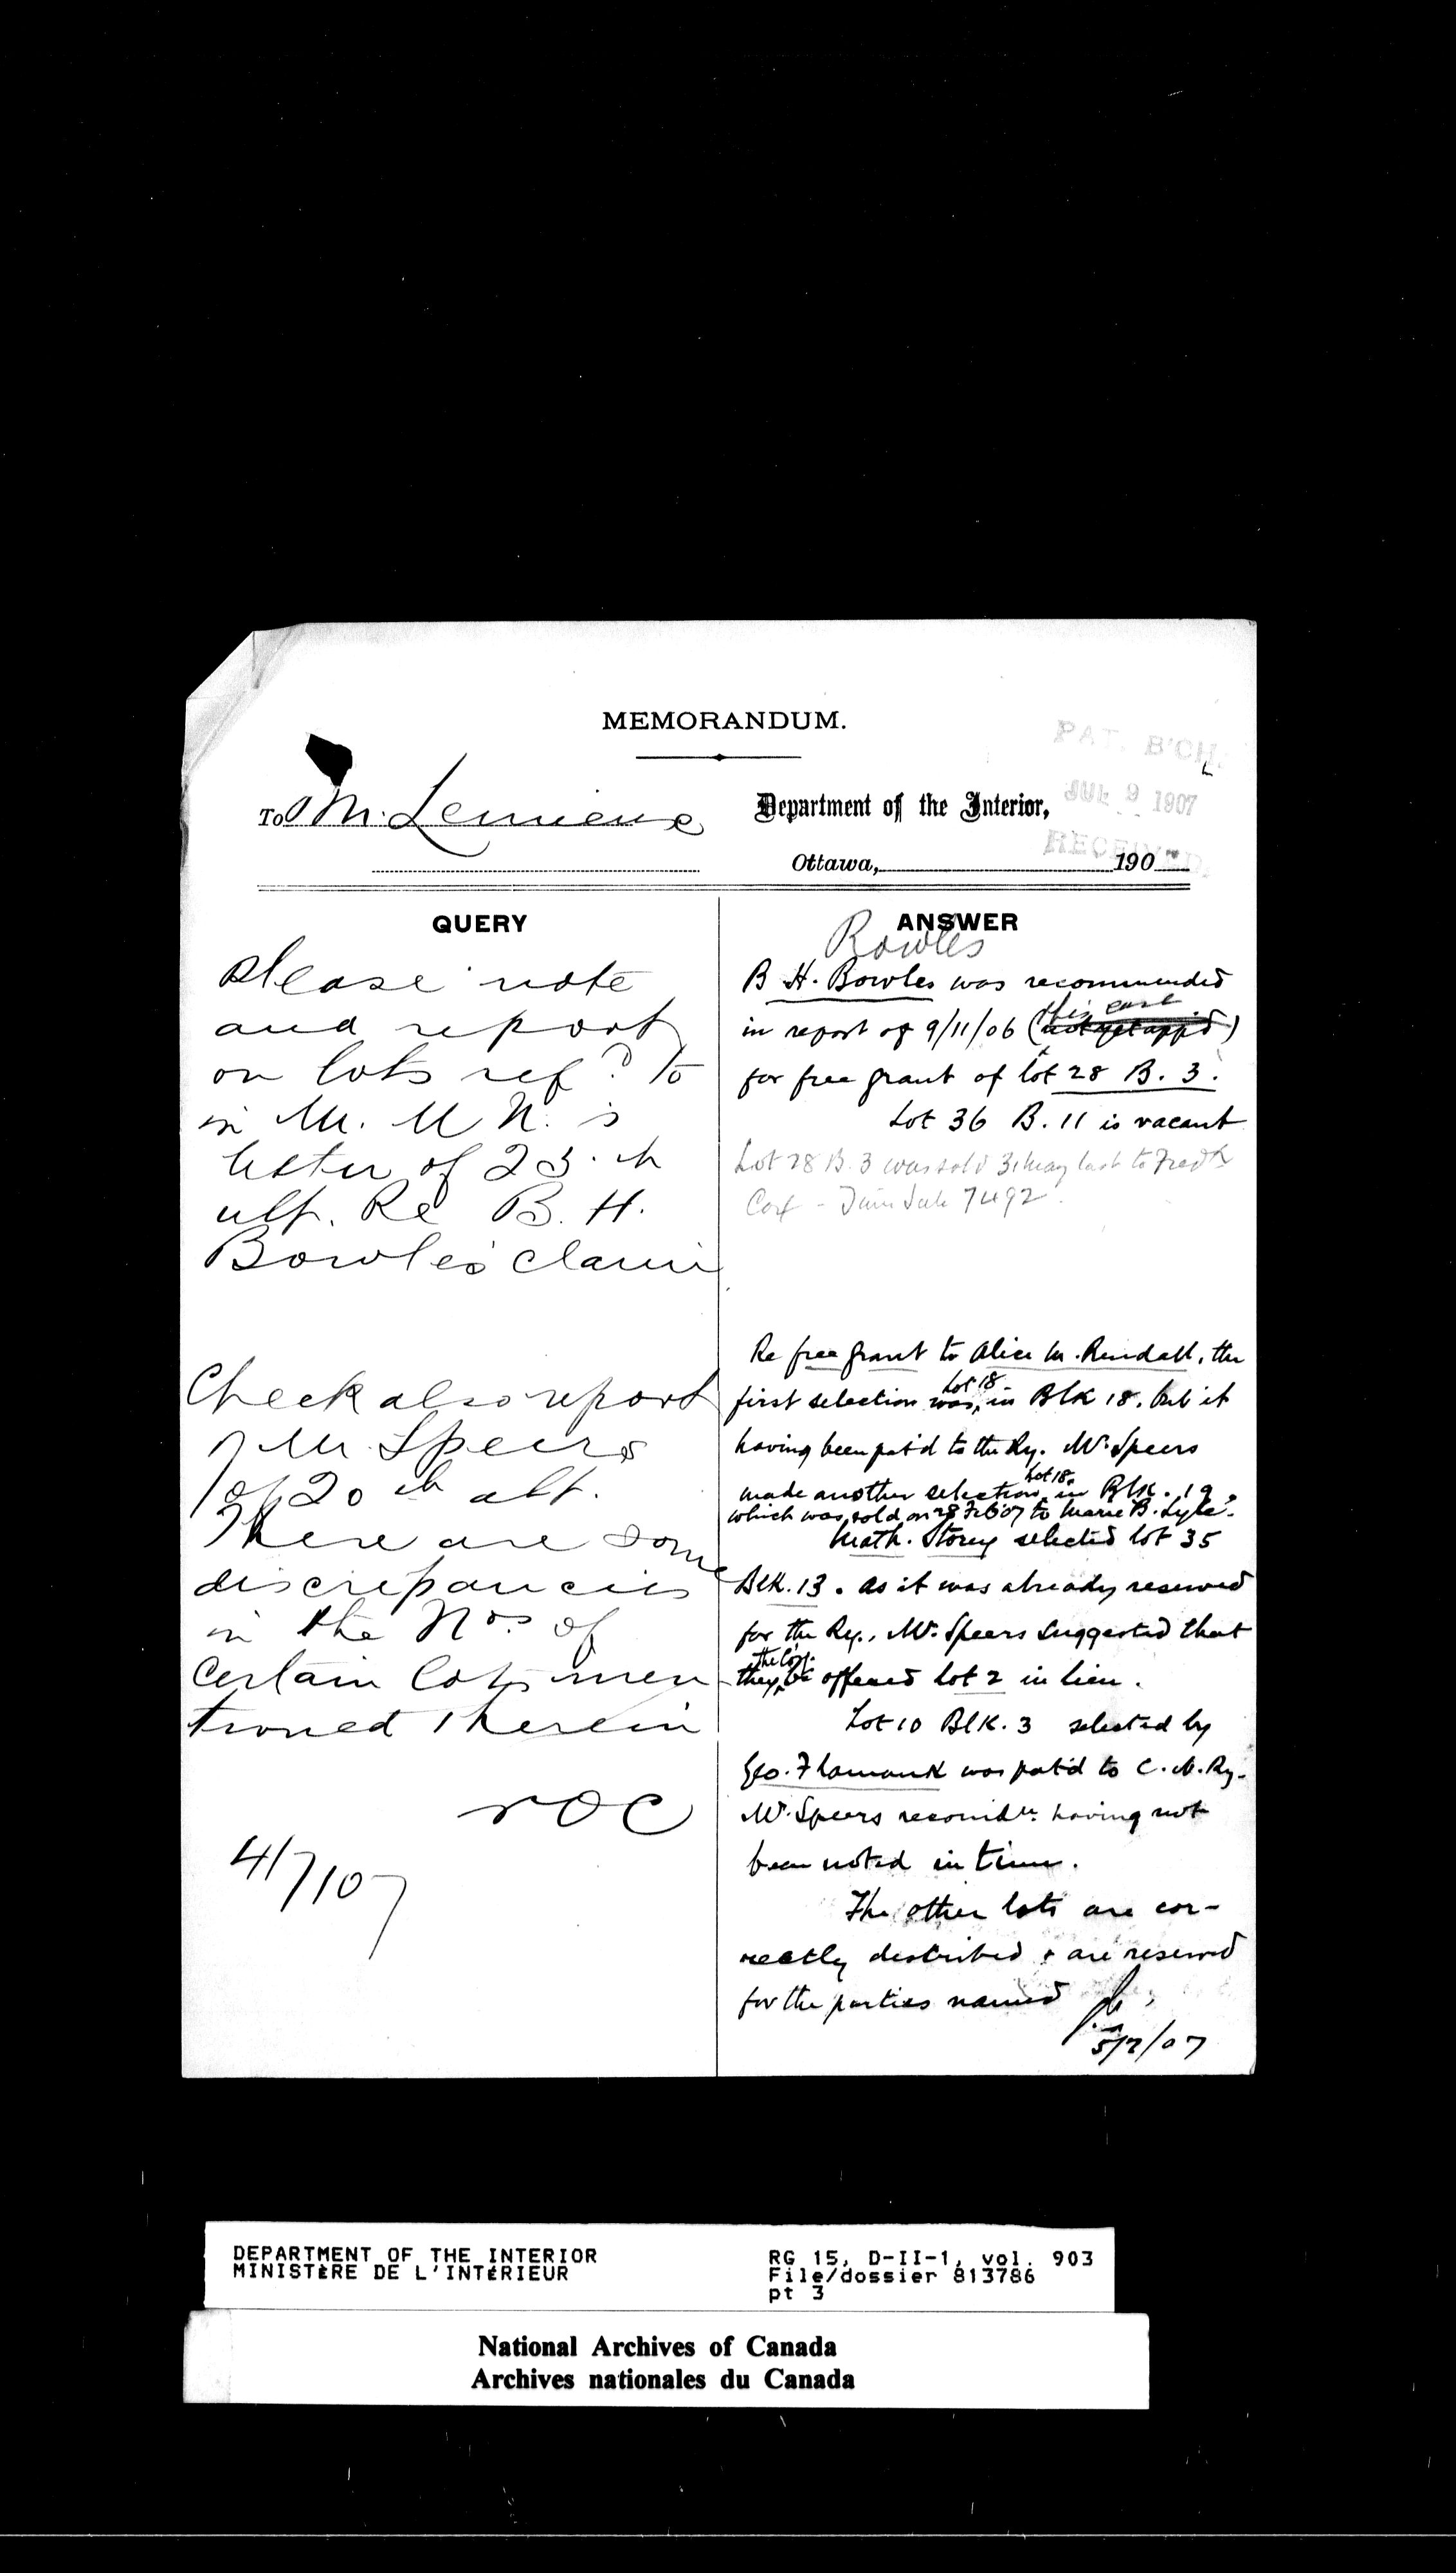 MEMORANDUM.
PAT. B'CH.
JUL 9 1907
RECEIVED
To M. Lemieux
Department of the Interior,
Ottawa, 190
QUERY
Please note
and report
on lots ref? to
in Mr. McN.'s
letter of 23.
ult. Re B. H.
Bowles' claim
Check also report
of Mr. Speers
of 20th ult.
There are some
discrepancies
in the Nos. of
certain lots men
tioned therein
ROC
4/7/07
ANSWER
Rowles
B H. Bowles was recommended
in report of 9/11/06 (this case not yet app'd)
for free grant of lot 28 B. 3.
Lot 36 B. 11 is vacant
Lot 28 B. 3 was sold 31 May last to Fredk
Cox - Sale 7492
Re free grant to Alice M. Rendall, the
first selection was Lot 18 in Blk 18. but it
having been pat'd to the Ry. Mr. Speers
made another selection Lot 18. in Blk. 19.
which was sold on 28 Feb 07 to Marie B. Lyle.
Math. Storey selected lot 35
Blk. 13. as it was already reserved
for the Ry., Mr. Speers suggested that
they the Coy. be offered lot 2 in lieu.
Lot 10 Blk. 3 selected by
Geo. Flamank was pat'd to C. N. Ry.
Mr. Speers recomdn. having not
been noted in time.
The other lots are cor-
rectly described & are reserved
for the parties named
5/7/07
DEPARTMENT OF THE INTERIOR
MINISTÈRE DE L'INTÉRIEUR
RG 15, D-II-1, vol. 903
File/dossier 813786
pt 3
National Archives of Canada
Archives nationales du Canada